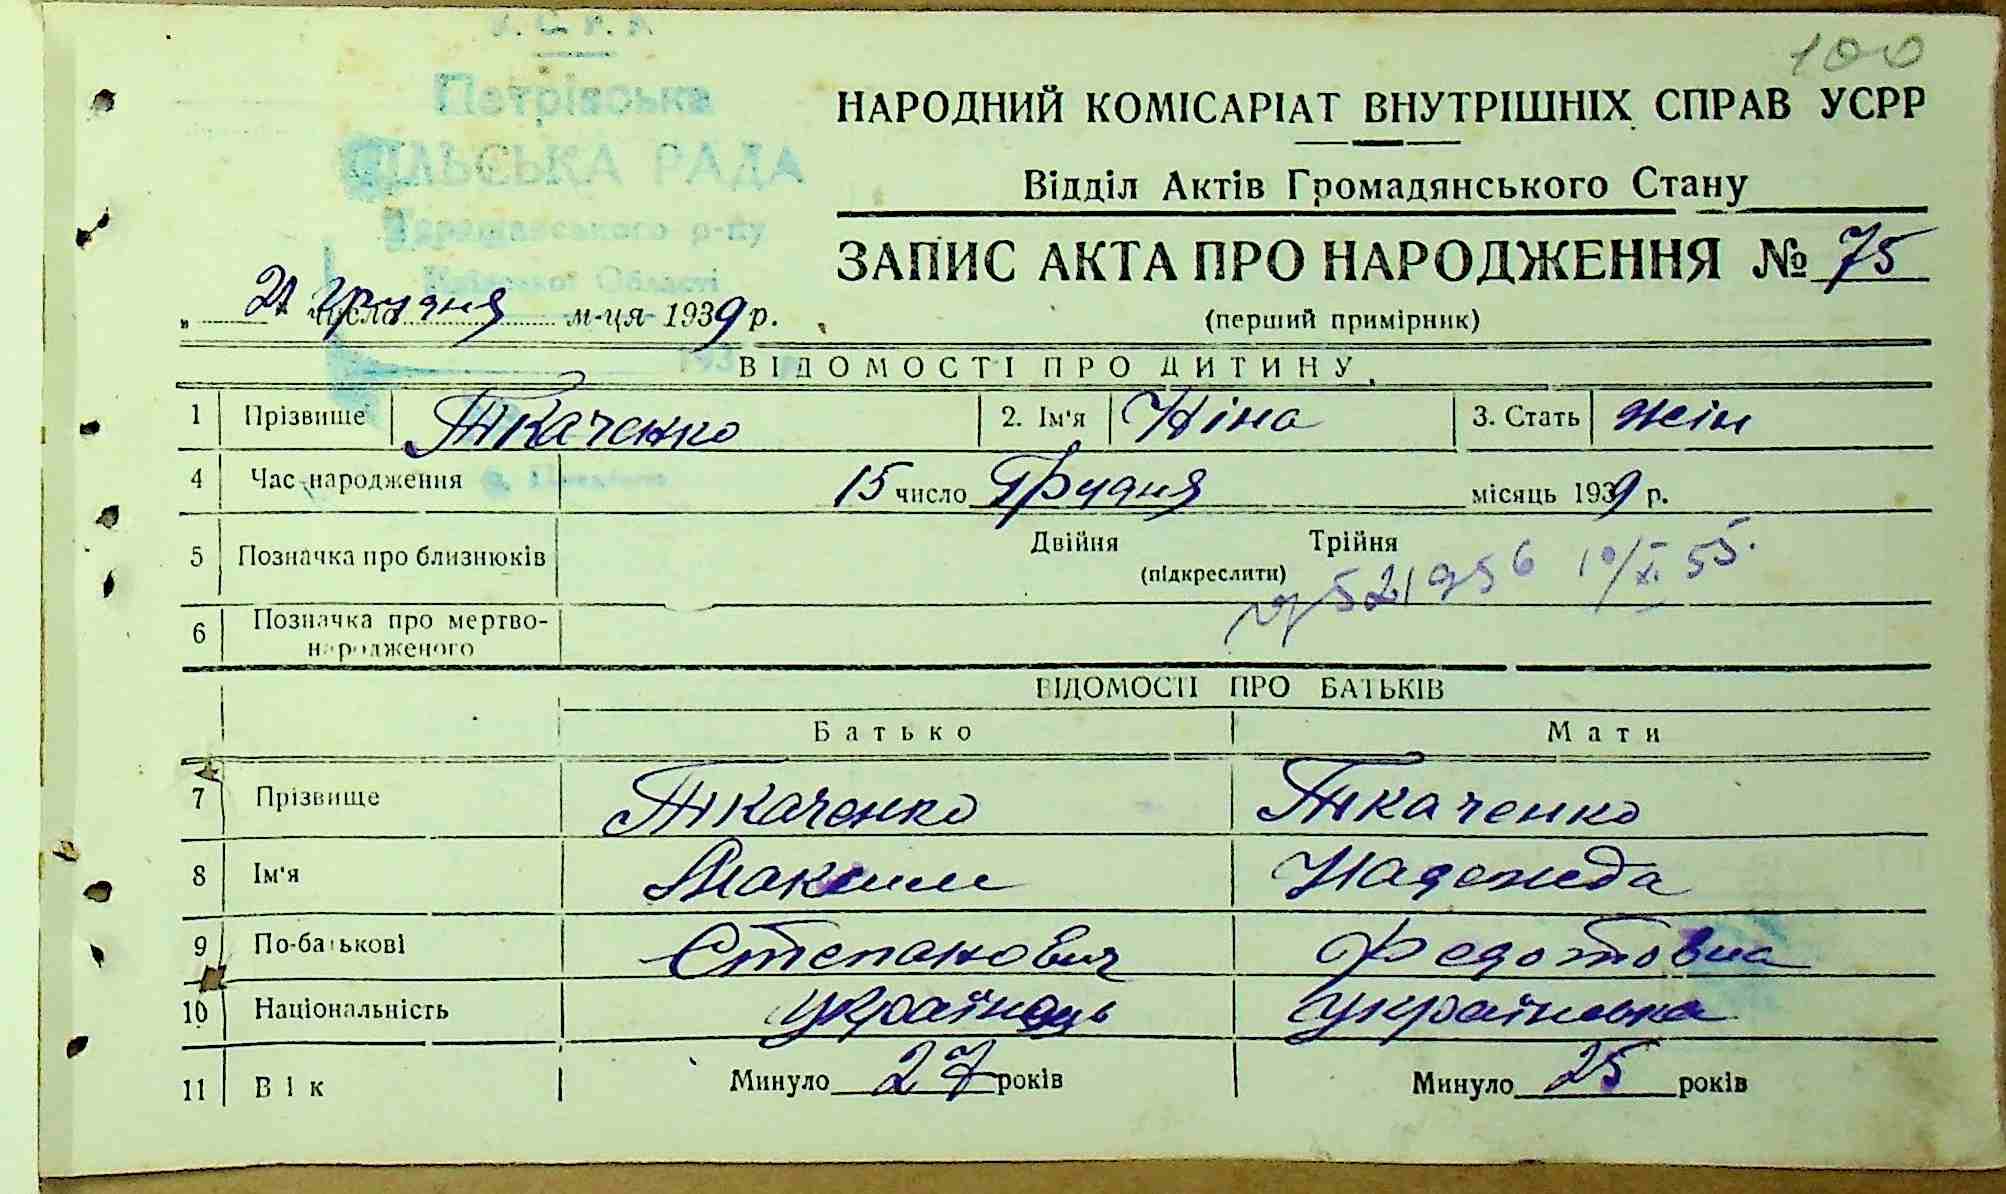 У. С. Р. Р.
100
Петрівська
НАРОДНИЙ КОМІСАРІАТ ВНУТРІШНІХ СПРАВ УСРР
СІЛЬСЬКА РАДА
Відділ Актів Громадянського Стану
р-ну
Київської Області
ЗАПИС АКТА ПРО НАРОДЖЕННЯ № 75
„ 21 число грудня м-ця 1939 р.
(перший примірник)
193
ВІДОМОСТІ ПРО ДИТИНУ
1 Прізвище Ткаченко 2. Ім'я Ніна 3. Стать жін
4 Час народження 15 число Грудня місяць 1939 р.
5 Позначка про близнюків Двійня Трійня
(підкреслити)
521956 10/XI 55.
6 Позначка про мертво-
народженого
ВІДОМОСТІ ПРО БАТЬКІВ
Батько Мати
7 Прізвище Ткаченко Ткаченко
8 Ім'я Максим Надежда
9 По-батькові Степанович Федотовна
10 Національність українець українька
11 Вік Минуло 27 років Минуло 25 років